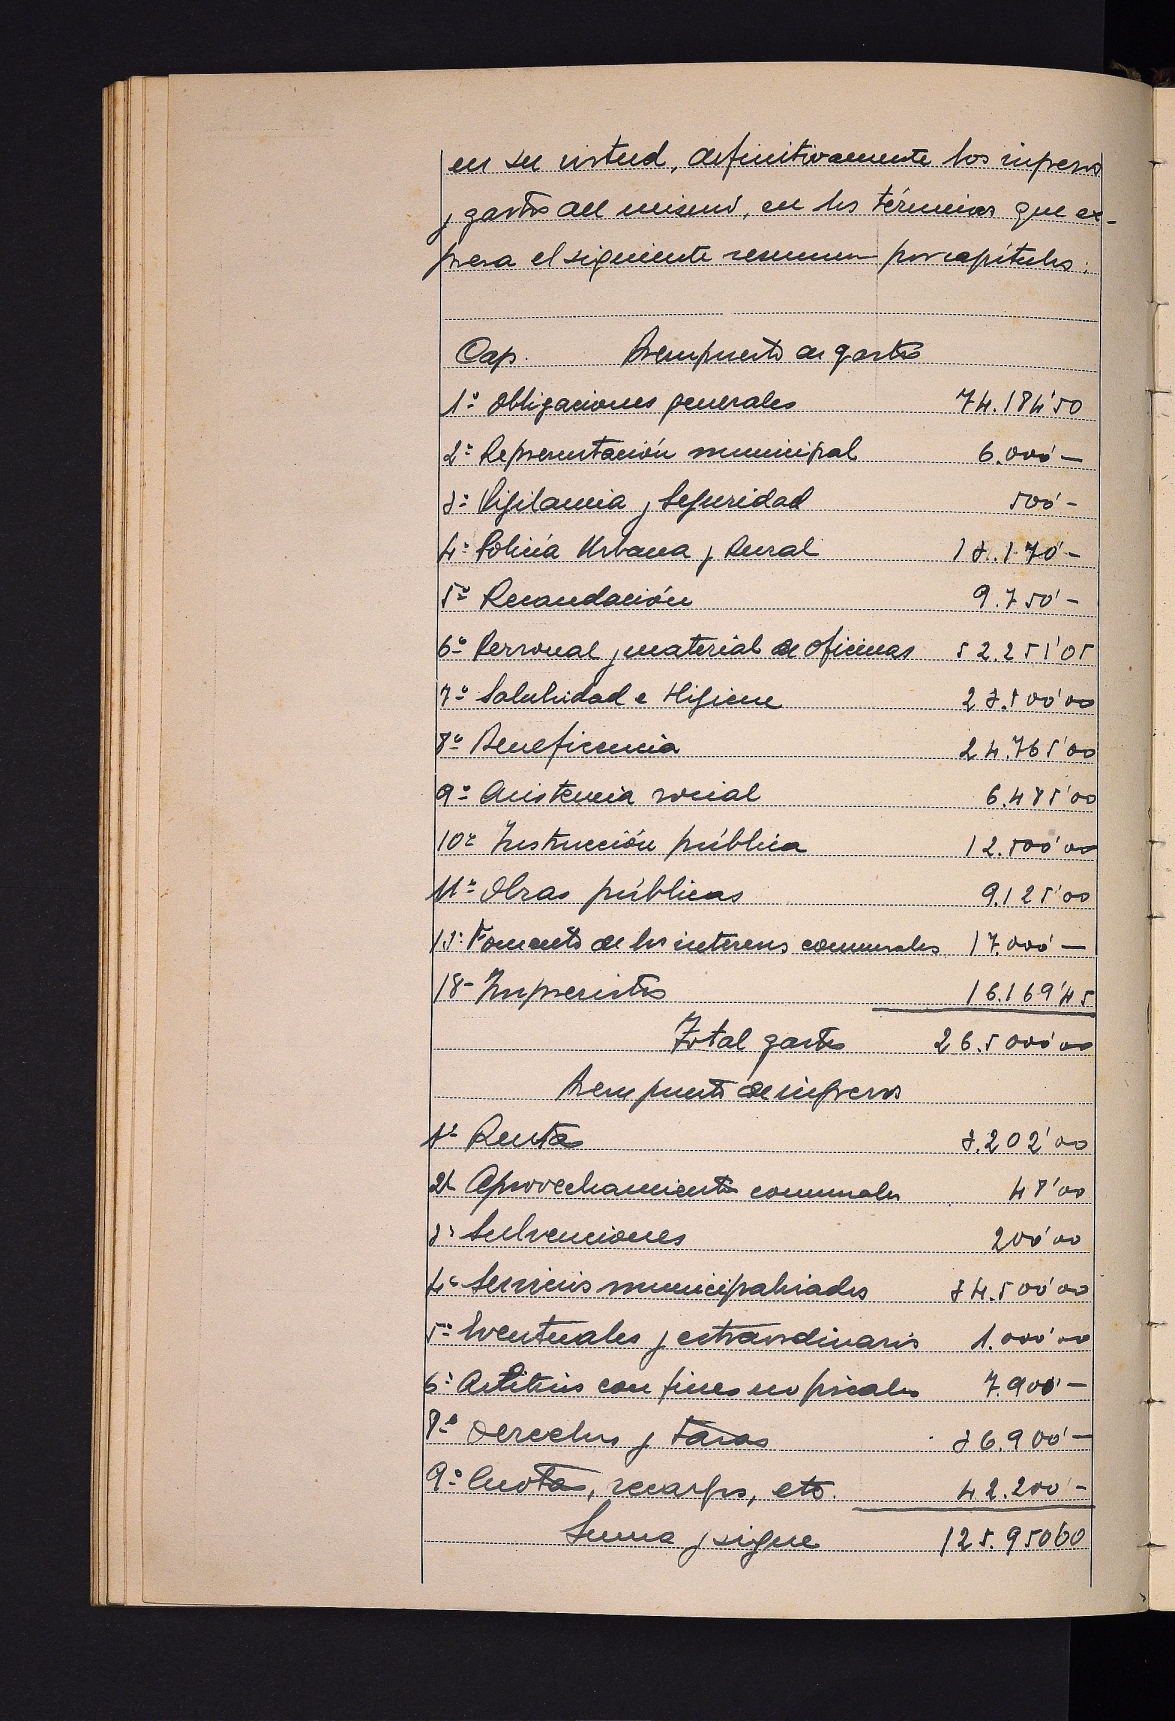 en su virtud, definitivamente los ingresos
y gastos del mismo, en los términos que ex-
presa el siguiente resumen por capítulos:
Cap. Presupuesto de gastos
1º Obligaciones generales 74.184'50
2º Representación municipal 6.000'—
3º Vigilancia y Seguridad 500'—
4º Policía Urbana y Rural 13.170'—
5º Recaudación 9.750'—
6º Personal y material de oficinas 52.251'05
7º Salubridad e Higiene 23.500'00
8º Beneficencia 24.765'00
9º Asistencia social 6.485'00
10º Instrucción pública 12.500'00
11º Obras públicas 9.125'00
13º Fomento de los intereses comunales 17.000'—
18- Imprevistos 16.169'45
Total gastos 26.5000'00
Presupuesto de ingresos
1º Rentas 3.202'00
2º Aprovechamientos comunales 48'00
3º Subvenciones 200'00
4º Servicios municipalizados 34.500'00
5º Eventuales y extraordinarios 1.000'00
6º Arbitrios con fines no fiscales 7.900'—
8º Derechos y Tasas 36.900'—
9º Cuotas, recargos, etc. 42.200'—
Suma y sigue 125.95060